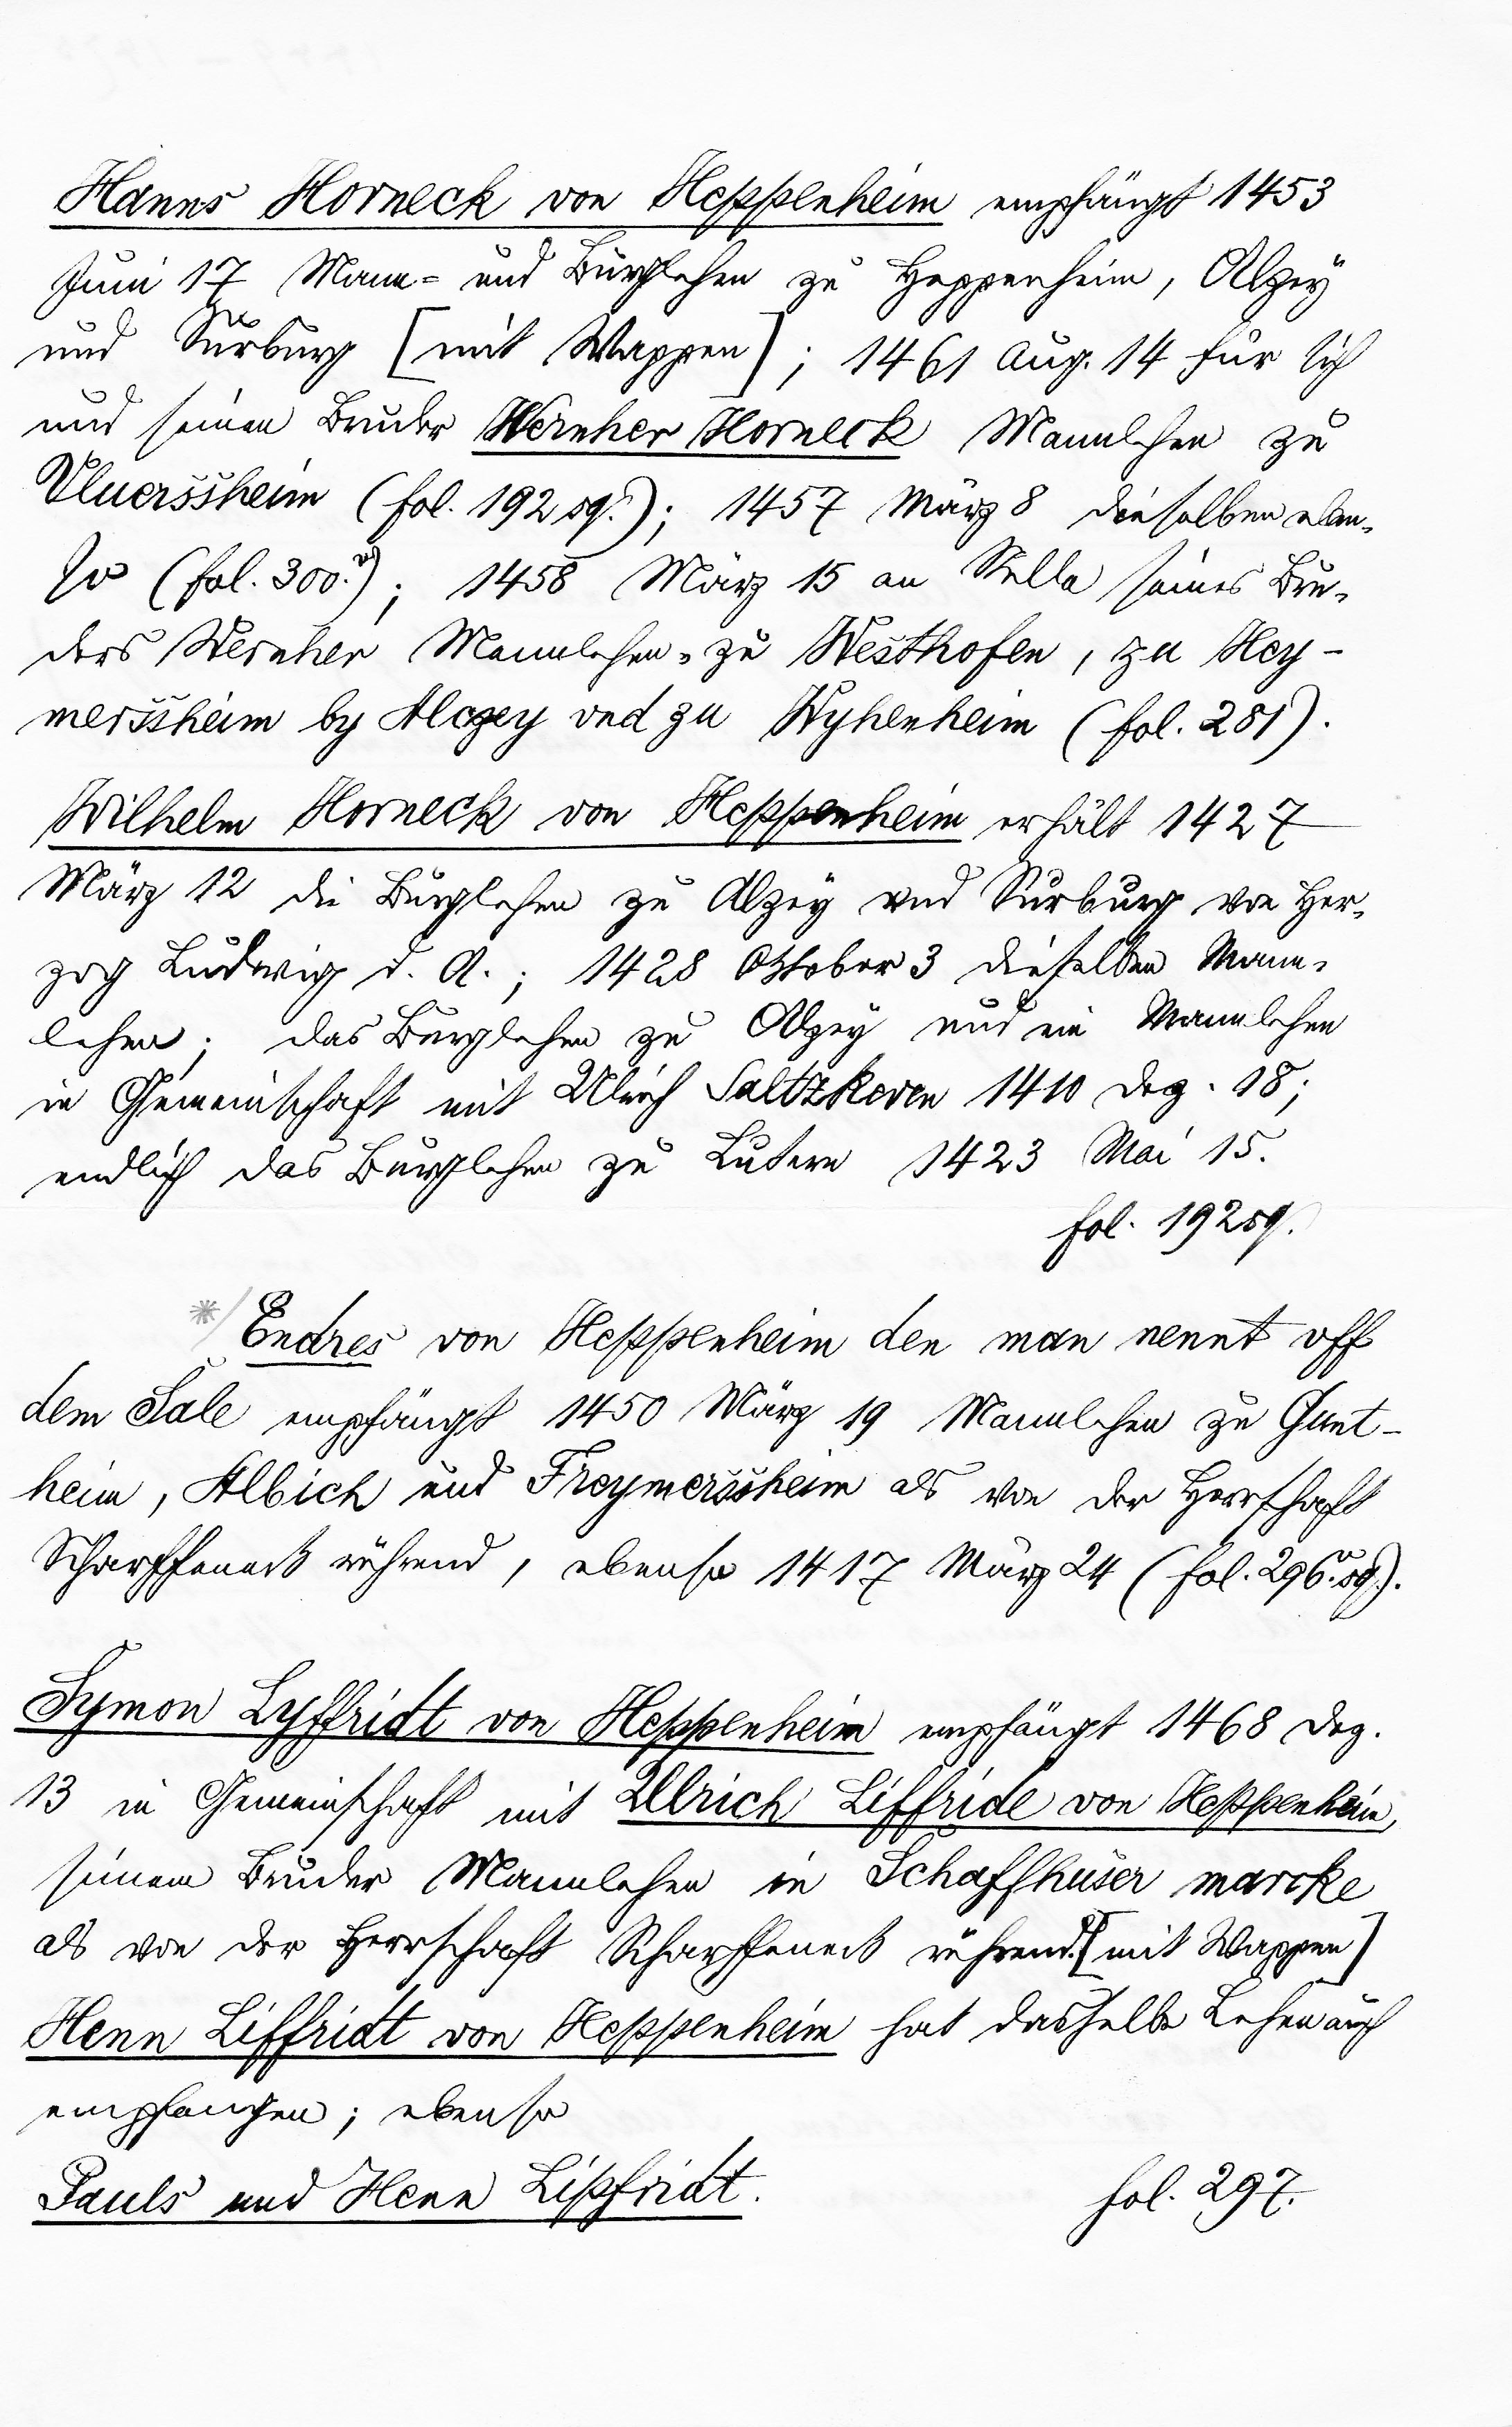 Hanns Horneck von Heppenheim empfängt 1453
Juni 17 Mann= und Burglehen zu Heppenheim, Alzey
und Surburg [mit Wappen]; 1461 Aug. 14 für sich
und seinen Bruder Wernher Horneck Mannlehen zu
Vluerssheim (fol. 192 sq.); 1457 März 8 dieselben eben-
so (fol. 300.v); 1458 März 15 an Stelle seines Bru-
ders Wernher Mannlehen zu Westhofen, zu Hey-
merssheim by Alczey vnd zu Wyhenheim (fol. 281).
Wilhelm Horneck von Heppenheim erhält 1427
März 12 die Burglehen zu Alzey und Surburg von Her-
zog Ludwig d. A.; 1428 Oktober 3 dieselben Mann-
lehen; das Burglehen zu Alzey und ein Mannlehen
in Gemeinschaft mit Ulrich Saltzkeren 1410 Dez. 18;
endlich das Burglehen zu Lutern 1423 Mai 15.
fol. 192 sq.
*/ Endres von Heppenheim den man nennt off
dem Sale empfängt 1450 März 19 Mannlehen zu Gunt-
heim, Albich und Freymerssheim als von der Herrschaft
Scharffeneck rührend, ebenso 1417 März 24 (fol. 296.v sq.).
Symon Lyffridt von Heppenheim empfängt 1468 Dez.
13 in Gemeinschaft mit Ulrich Liffride von Heppenheim,
seinem Bruder Mannlehen in Schaffhuser marcke
als von der Herrschaft Scharffeneck rührend. [mit Wappen]
Henn Liffridt von Heppenheim hat dasselbe Lehen auch
empfangen; ebenso
Pauls und Henn Lipfridt.
fol. 297.